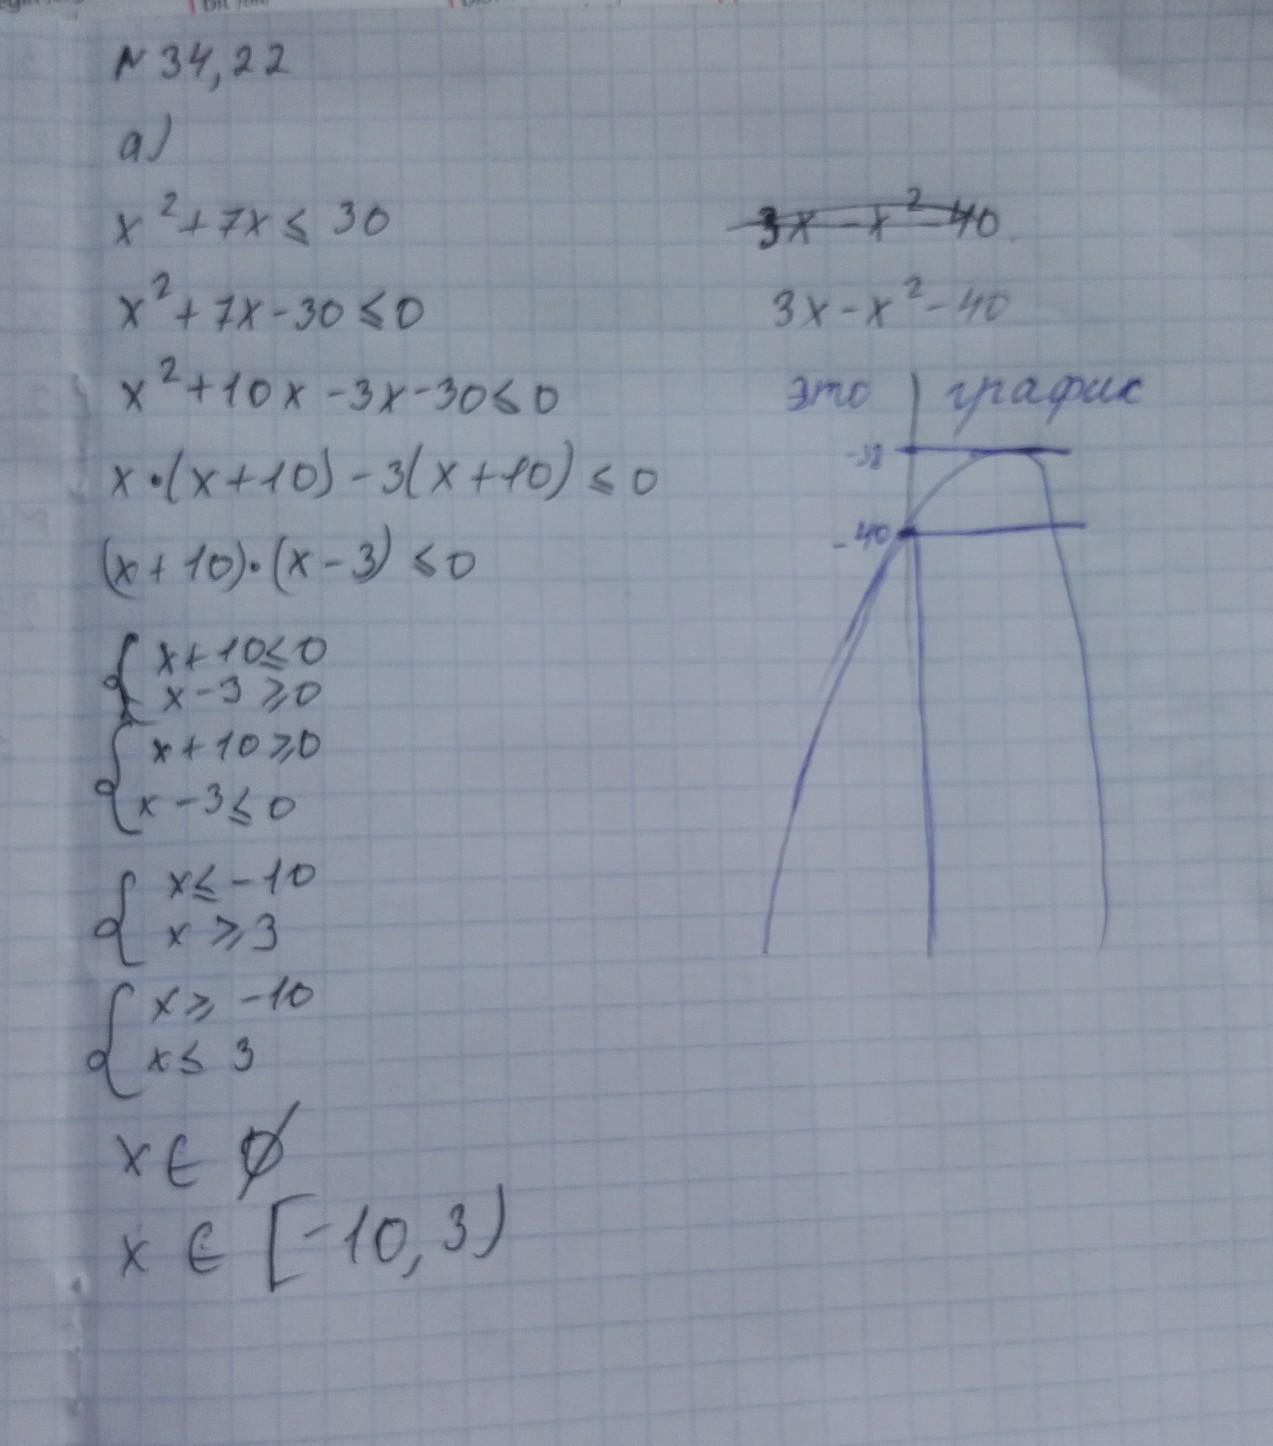 № 34,22
а)
x²+7x ≤ 30
x²+7x-30 ≤ 0
x²+10x-3x-30 ≤ 0
x·(x+10)-3(x+10) ≤ 0
(x+10)·(x-3) ≤ 0
{ x+10 ≤ 0
x-3 ≥ 0
{ x+10 ≥ 0
x-3 ≤ 0
{ x ≤ -10
x ≥ 3
{ x ≥ -10
x ≤ 3
x ∈ ∅
x ∈ [-10, 3)
3x-x²-40
3x-x²-40
это график
-40